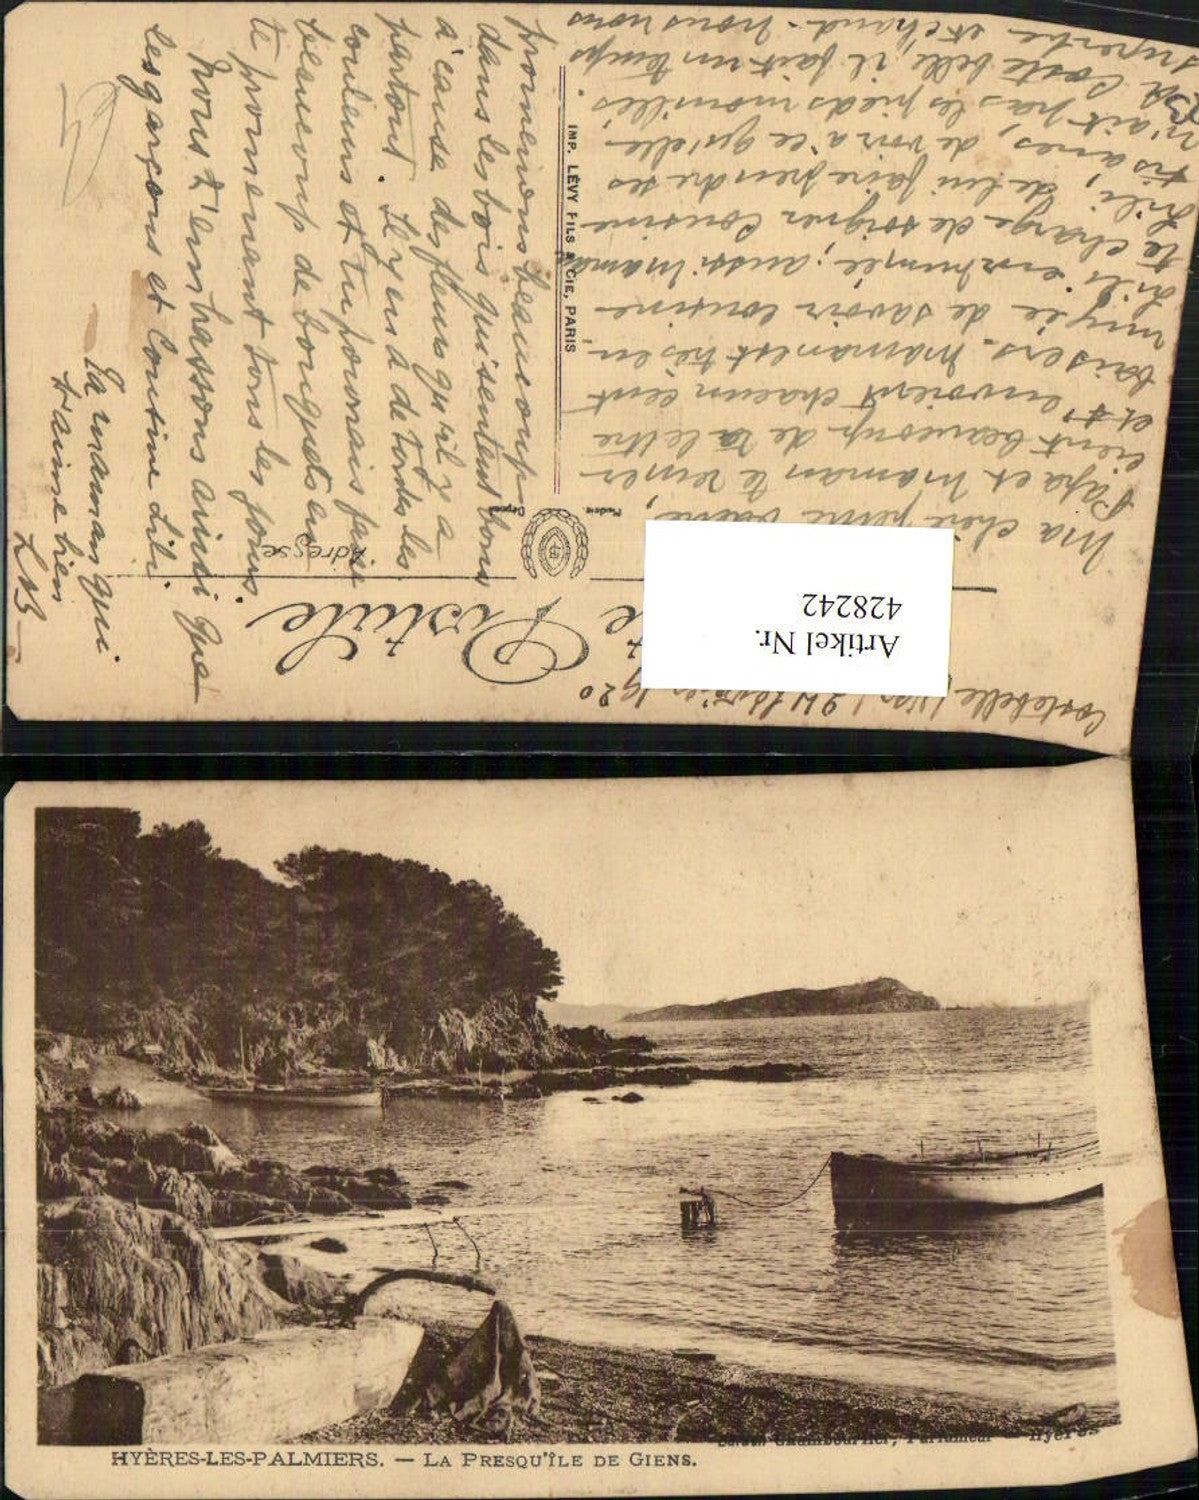 Costebelle (Var) 24 février 1920
Postale
Adresse
Artikel Nr.
428242
Modèle
Déposé
IMP. LÉVY FILS & CIE, PARIS
Ma chère petite
Papa et Maman te remer-
cient beaucoup de ta lettre
et t'envoient chacun cent
baisers. Maman est très en-
nuyée de savoir cousine
Lili enrhumée; aussi Maman
te charge de soigner Cousine
Lili, de lui faire prendre ses
tisanes, de voir à ce qu'elle
n'ait pas les pieds mouillés.
A Coste belle, il fait un temps
superbe et chaud. Nous nous
promenons beaucoup
dans les bois qui sentent bons
à cause des fleurs qu'il y a
partout. Il y en a de toutes les
couleurs et tu pourrais faire
beaucoup de bouquets en
te promenant tous les jours.
Nous t'embrassons ainsi que
les garçons et Cousine Lili.
Ta maman qui
t'aime bien
HYÈRES-LES-PALMIERS. — LA PRESQU'ÎLE DE GIENS.
Hyères